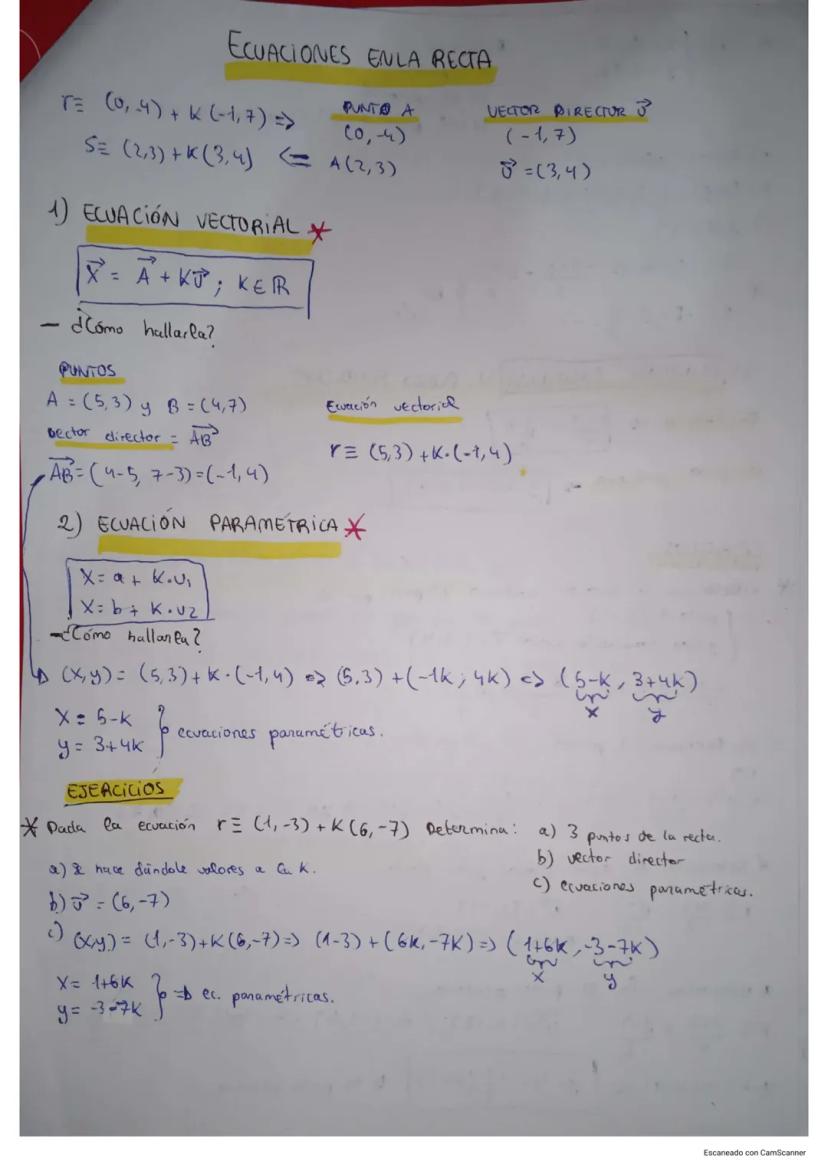 ECUACIONES EN LA RECTA
r≡ (0,-4) + K (-1,7) => PUNTO A VECTOR DIRECTOR J⃗
(0,-4) (-1,7)
S≡ (2,3) + K(3,4) <= A(2,3) J⃗ = (3,4)
1) ECUACIÓN VECTORIAL *
X⃗ = A⃗ + KJ⃗ ; K∈ℝ
- ¿Cómo hallarla?
PUNTOS
A = (5,3) y B = (4,7) Ecuación vectorial
Vector director = AB⃗
r≡ (5,3) + K·(-1,4)
AB⃗ = (4-5, 7-3) = (-1,4)
2) ECUACIÓN PARAMÉTRICA *
X = a + K·U₁
X = b + K·U₂
- ¿Cómo hallarla?
(X,y) = (5,3) + K·(-1,4) => (5,3) + (-1k ; 4k) <=> (5-k, 3+4k)
x y
X = 5-k
y = 3+4k } ecuaciones paramétricas.
EJERCICIOS
* Dada la ecuación r≡ (1,-3) + K(6,-7) Determina: a) 3 puntos de la recta.
b) vector director
c) ecuaciones paramétricas.
a) Se hace dándole valores a la K.
b) J⃗ = (6,-7)
c) (x,y) = (1,-3) + K(6,-7) => (1-3) + (6k, -7K) => (1+6k, -3-7k)
x y
X = 1+6K
y = -3-7K } => ec. paramétricas.
Escaneado con CamScanner